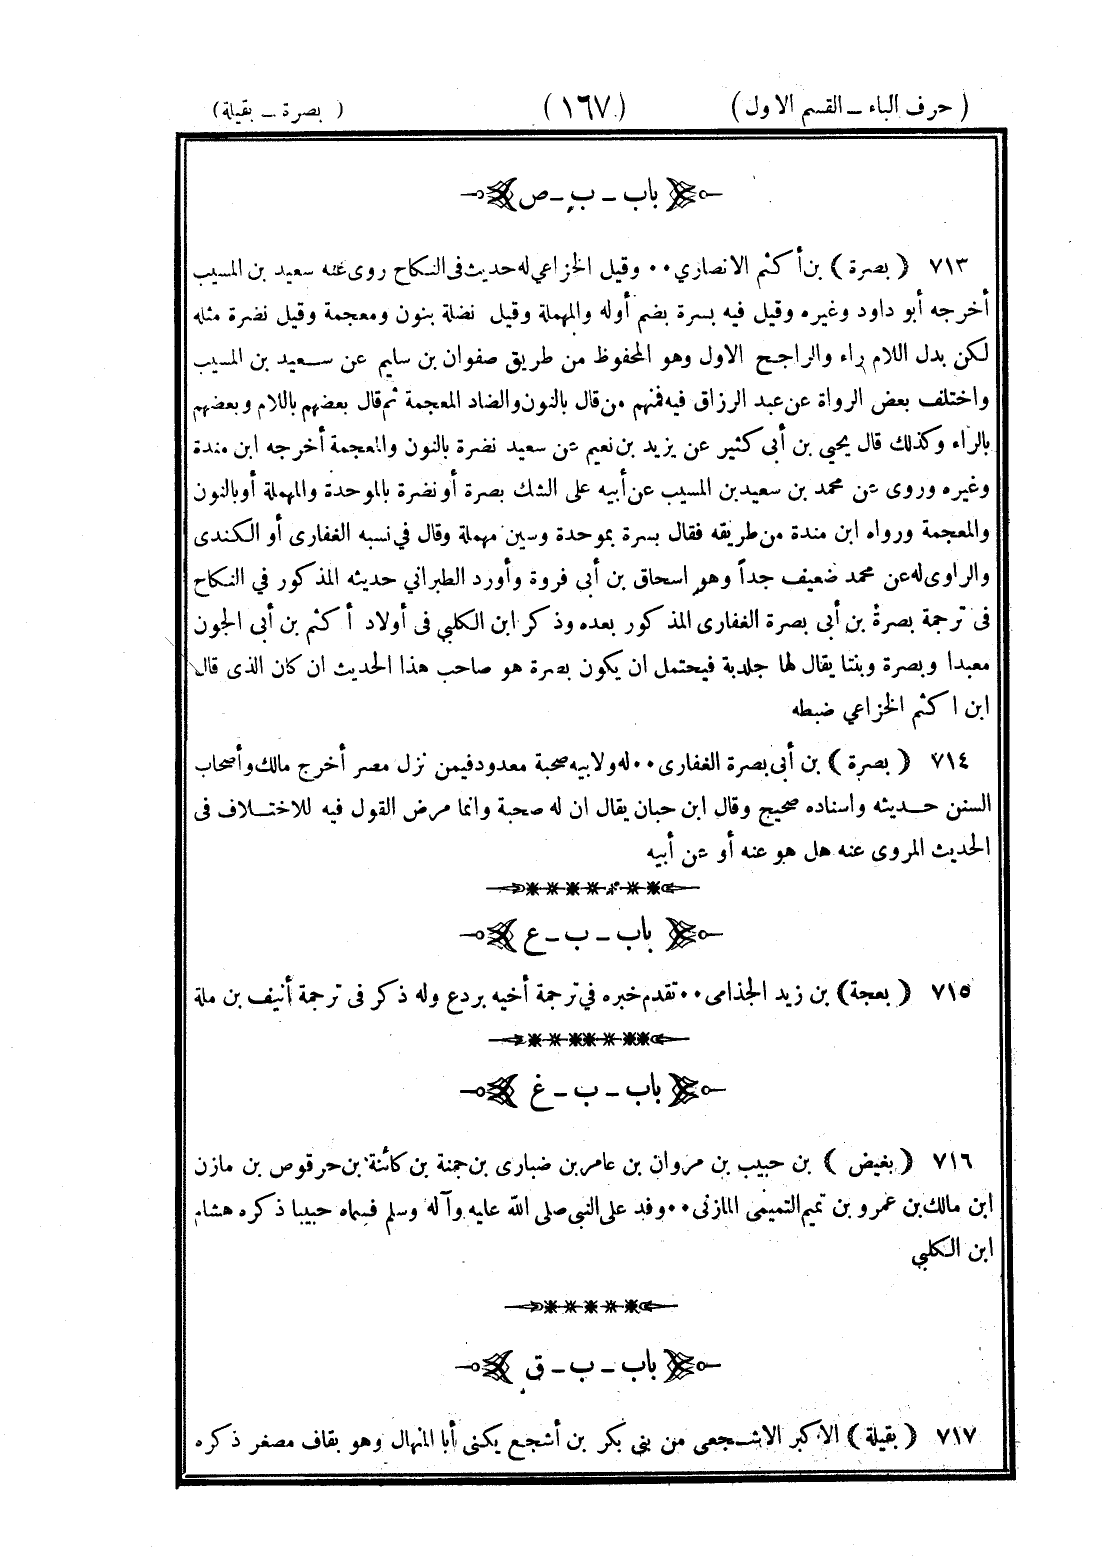 ( حرف الباء ــ القسم الاول ) (١٦٧) ( بصرة ــ بقيلة )
باب ـ ب ـ ص
٧١٣ ( بصرة ) بن أكثم الانصاري ٠٠ وقيل الخزاعي له حديث فى النكاح روى عنه سعيد بن المسيب
أخرجه أبو داود وغيره وقيل فيه بسرة بضم أوله والمهملة وقيل نضلة بنون ومعجمة وقيل نضرة مثله
لكن بدل اللام راء والراجح الاول وهو المحفوظ من طريق صفوان بن سليم عن سعيد بن المسيب
واختلف بعض الرواة عن عبد الرزاق فيه فمنهم من قال بالنون والضاد المعجمة ثم قال بعضهم باللام وبعضهم
بالراء وكذلك قال يحيى بن أبى كثير عن يزيد بن نعيم عن سعيد نضرة بالنون والمعجمة أخرجه ابن مندة
وغيره وروى عن محمد بن سعيد بن المسيب عن أبيه على الشك بصرة أو نضرة بالموحدة والمهملة أو بالنون
والمعجمة ورواه ابن مندة من طريقه فقال بسرة بموحدة وسين مهملة وقال في نسبه الغفارى أو الكندى
والراوى له عن محمد ضعيف جداً وهو اسحاق بن أبى فروة وأورد الطبراني حديثه المذكور في النكاح
فى ترجمة بصرة بن أبى بصرة الغفارى المذكور بعده وذكر ابن الكلبي فى أولاد أكثم بن أبى الجون
معبدا وبصرة وبنتا يقال لها جلدية فيحتمل ان يكون بصرة هو صاحب هذا الحديث ان كان الذى قال
ابن اكثم الخزاعي ضبطه
٧١٤ ( بصرة ) بن أبى بصرة الغفارى ٠٠ له ولابيه صحبة معدود فيمن نزل مصر أخرج مالك وأصحاب
السنن حديثه واسناده صحيح وقال ابن حبان يقال ان له صحبة وانما مرض القول فيه للاختلاف فى
الحديث المروى عنه هل هو عنه أو عن أبيه
باب ـ ب ـ ع
٧١٥ ( بعجة ) بن زيد الجذامى ٠٠ تقدم خبره في ترجمة أخيه بردع وله ذكر فى ترجمة أنيف بن ملة
باب ـ ب ـ غ
٧١٦ ( بغيض ) بن حبيب بن مروان بن عامر بن ضبارى بن حجنة بن كائنة بن حرقوص بن مازن
ابن مالك بن عمرو بن تميم التميمى المازنى ٠٠ وفد على النبي صلى الله عليه وآله وسلم فسماه حبيبا ذكره هشام
ابن الكلبي
باب ـ ب ـ ق
٧١٧ ( بقيلة ) الاكبر الاشجعى من بنى بكر بن أشجع يكنى أبا المنهال وهو بقاف مصغر ذكره